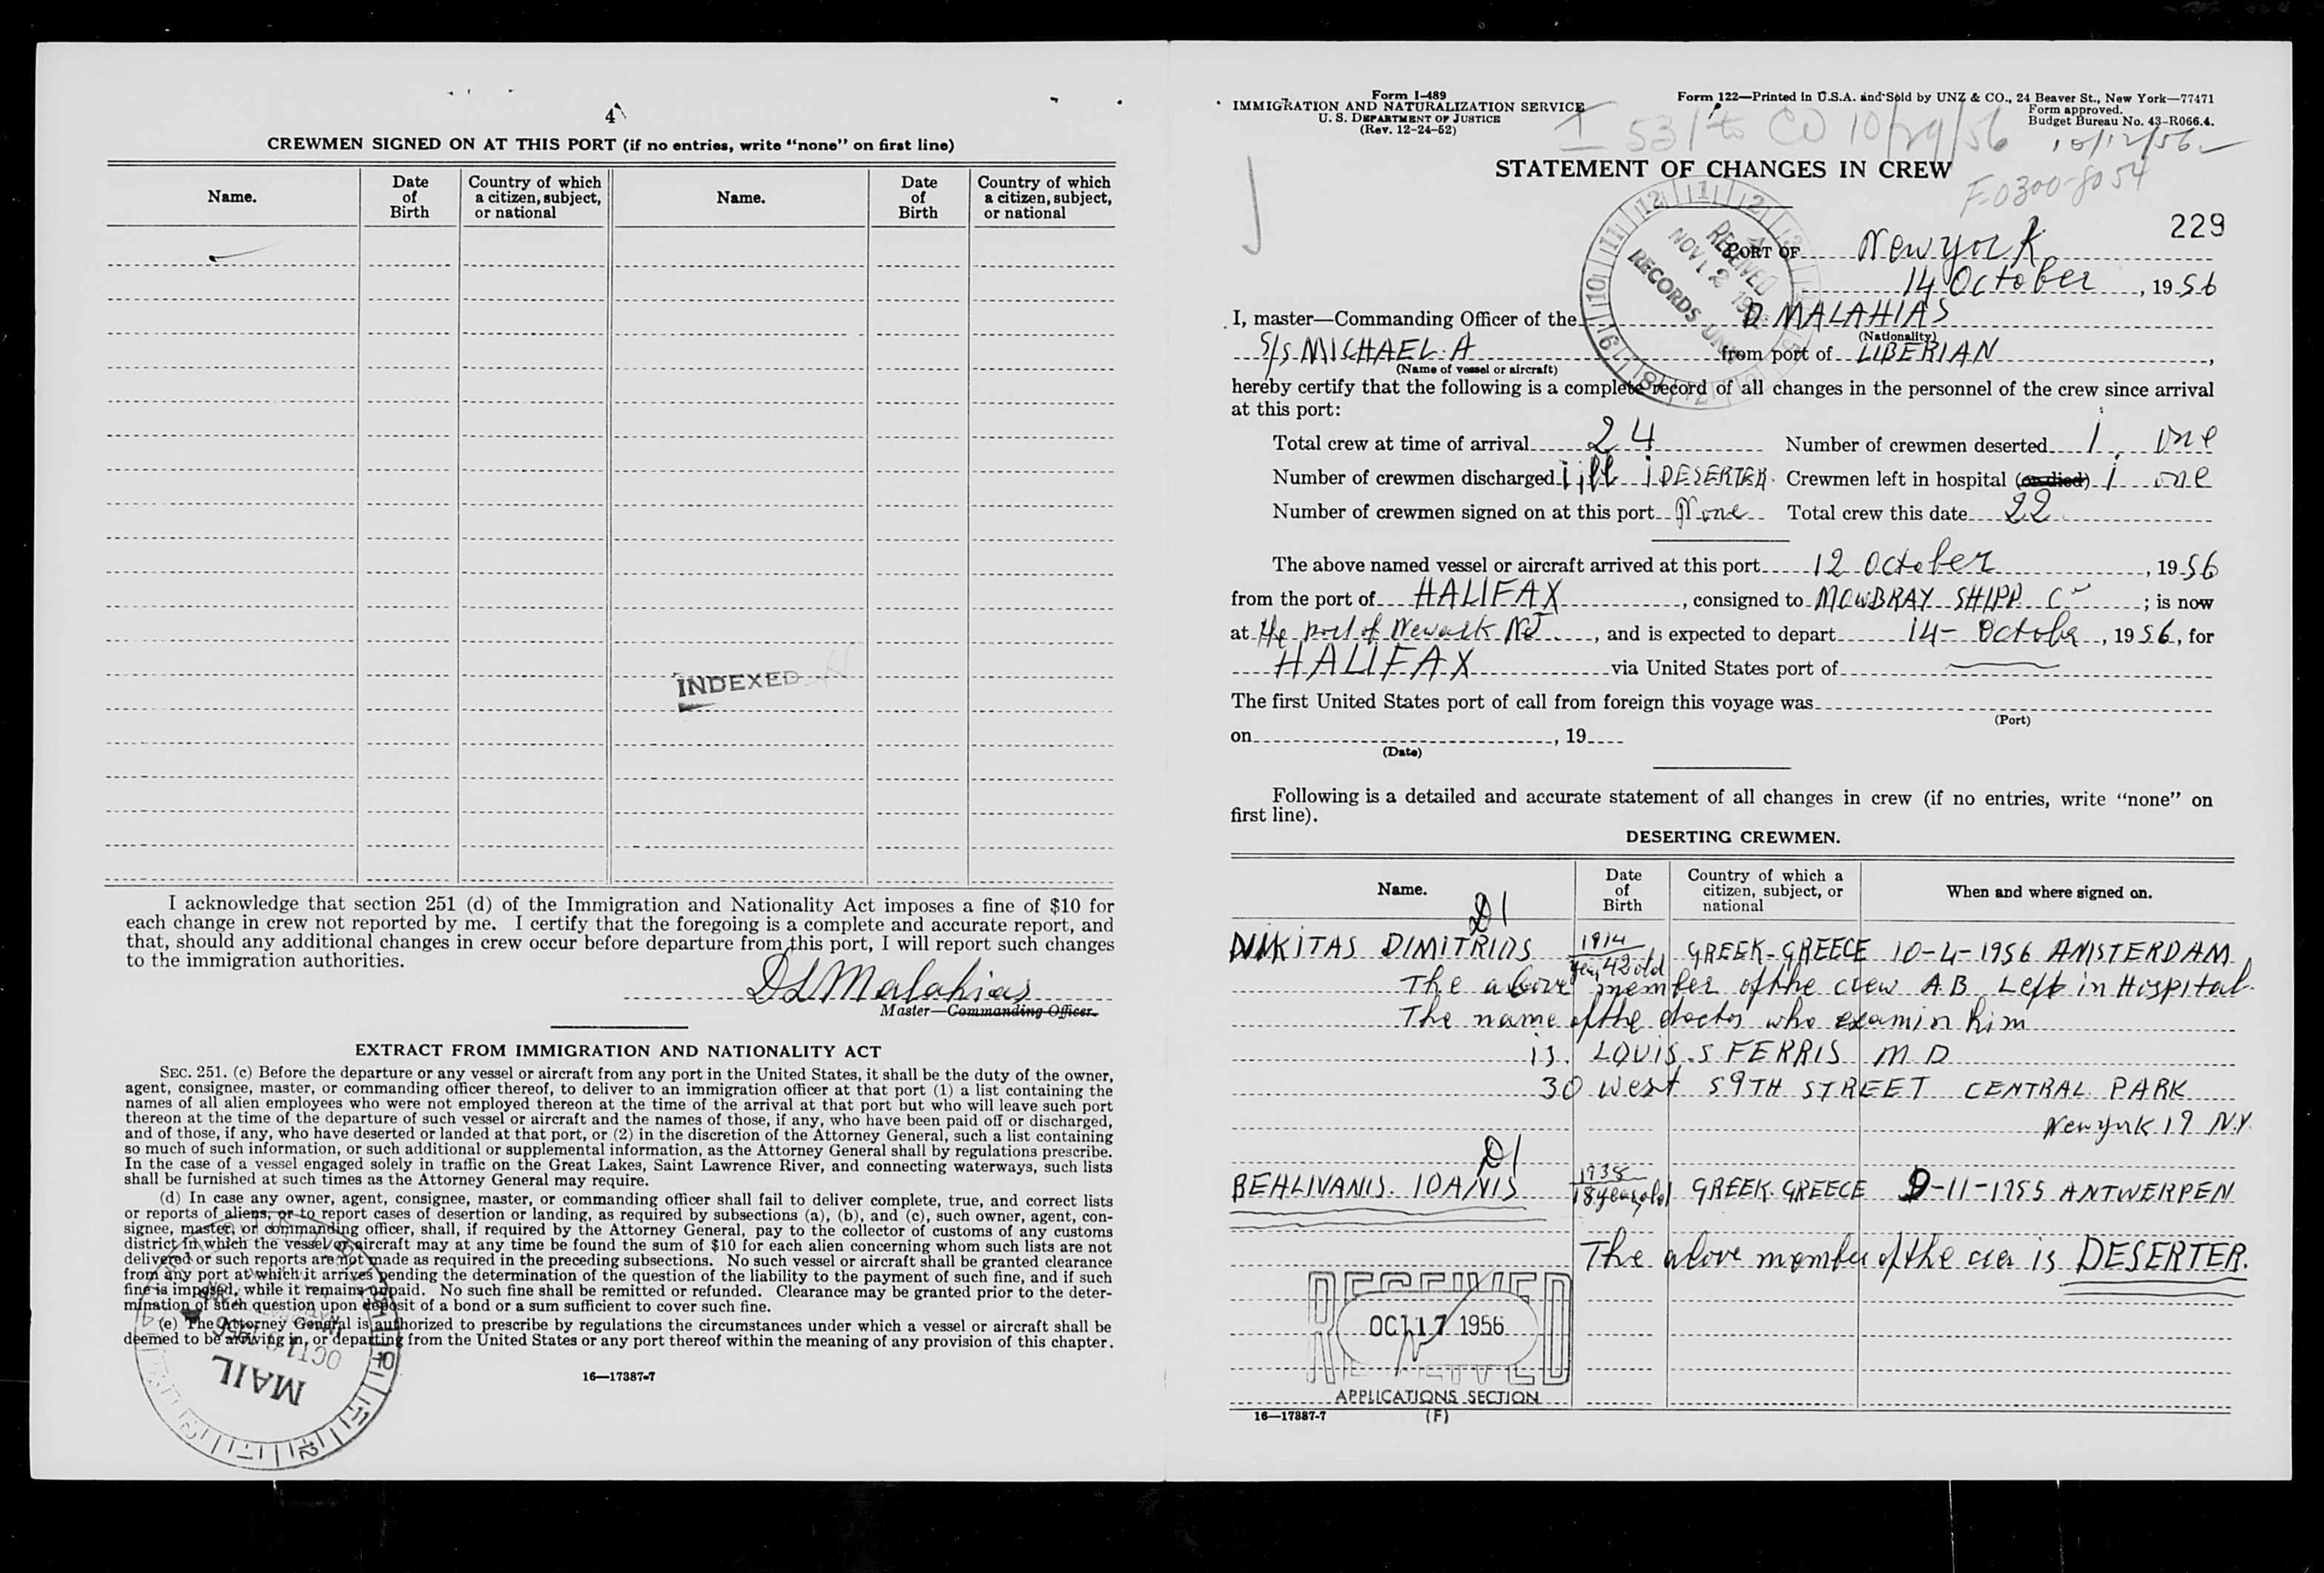 4
CREWMEN SIGNED ON AT THIS PORT (if no entries, write “none” on first line)
Name. Date of Birth Country of which a citizen, subject, or national Name. Date of Birth Country of which a citizen, subject, or national
INDEXED
I acknowledge that section 251 (d) of the Immigration and Nationality Act imposes a fine of $10 for
each change in crew not reported by me. I certify that the foregoing is a complete and accurate report, and
that, should any additional changes in crew occur before departure from this port, I will report such changes
to the immigration authorities.
DLMalahias
Master—Commanding Officer.
EXTRACT FROM IMMIGRATION AND NATIONALITY ACT
SEC. 251. (c) Before the departure or any vessel or aircraft from any port in the United States, it shall be the duty of the owner,
agent, consignee, master, or commanding officer thereof, to deliver to an immigration officer at that port (1) a list containing the
names of all alien employees who were not employed thereon at the time of the arrival at that port but who will leave such port
thereon at the time of the departure of such vessel or aircraft and the names of those, if any, who have been paid off or discharged,
and of those, if any, who have deserted or landed at that port, or (2) in the discretion of the Attorney General, such a list containing
so much of such information, or such additional or supplemental information, as the Attorney General shall by regulations prescribe.
In the case of a vessel engaged solely in traffic on the Great Lakes, Saint Lawrence River, and connecting waterways, such lists
shall be furnished at such times as the Attorney General may require.
(d) In case any owner, agent, consignee, master, or commanding officer shall fail to deliver complete, true, and correct lists
or reports of aliens, or to report cases of desertion or landing, as required by subsections (a), (b), and (c), such owner, agent, con-
signee, master, or commanding officer, shall, if required by the Attorney General, pay to the collector of customs of any customs
district in which the vessel or aircraft may at any time be found the sum of $10 for each alien concerning whom such lists are not
delivered or such reports are not made as required in the preceding subsections. No such vessel or aircraft shall be granted clearance
from any port at which it arrives pending the determination of the question of the liability to the payment of such fine, and if such
fine is imposed, while it remains unpaid. No such fine shall be remitted or refunded. Clearance may be granted prior to the deter-
mination of such question upon deposit of a bond or a sum sufficient to cover such fine.
(e) The Attorney General is authorized to prescribe by regulations the circumstances under which a vessel or aircraft shall be
deemed to be arriving in, or departing from the United States or any port thereof within the meaning of any provision of this chapter.
MAIL
16—17387-7
Form I-489
IMMIGRATION AND NATURALIZATION SERVICE
U. S. DEPARTMENT OF JUSTICE
(Rev. 12-24-52)
Form 122—Printed in U.S.A. and Sold by UNZ & CO., 24 Beaver St., New York—77471
Form approved.
Budget Bureau No. 43-R066.4.
I 531 to CO 10/29/56
10/12/56
STATEMENT OF CHANGES IN CREW
F-0300-8054
229
RECEIVED
NOV 12
RECORDS UNIT
PORT OF New york
14 October, 1956
I, master—Commanding Officer of the D MALAHIAS
(Nationality)
S/S MICHAEL A from port of LIBERIAN,
(Name of vessel or aircraft)
hereby certify that the following is a complete record of all changes in the personnel of the crew since arrival
at this port:
Total crew at time of arrival 24 Number of crewmen deserted 1 one
Number of crewmen discharged 1 ill 1 DESERTER. Crewmen left in hospital (or died) 1 one
Number of crewmen signed on at this port None Total crew this date 22
The above named vessel or aircraft arrived at this port 12 October, 1956
from the port of HALIFAX, consigned to MOWBRAY SHIPP Co; is now
at the port of Newark NJ, and is expected to depart 14- October, 1956, for
HALIFAX via United States port of
The first United States port of call from foreign this voyage was
(Port)
on , 19
(Date)
Following is a detailed and accurate statement of all changes in crew (if no entries, write “none” on
first line).
DESERTING CREWMEN.
Name. Date of Birth Country of which a citizen, subject, or national When and where signed on.
D1
NIKITAS DIMITRIOS 1914 year 42 old GREEK-GREECE 10-4-1956 AMSTERDAM
The above member of the crew A.B Left in Hospital.
The name of the doctor who examin him
is. LOUIS.S FERRIS M D
30 west 59TH STREET CENTRAL PARK
New york 19 N.Y.
D1
BEHLIVANIS. IOANIS 1938 18 years old GREEK GREECE 9-11-1955 ANTWERPEN
The above member of the crer is DESERTER.
RECEIVED
OCT 17 1956
RECEIVED
APPLICATIONS SECTION
16—17387-7 (F)